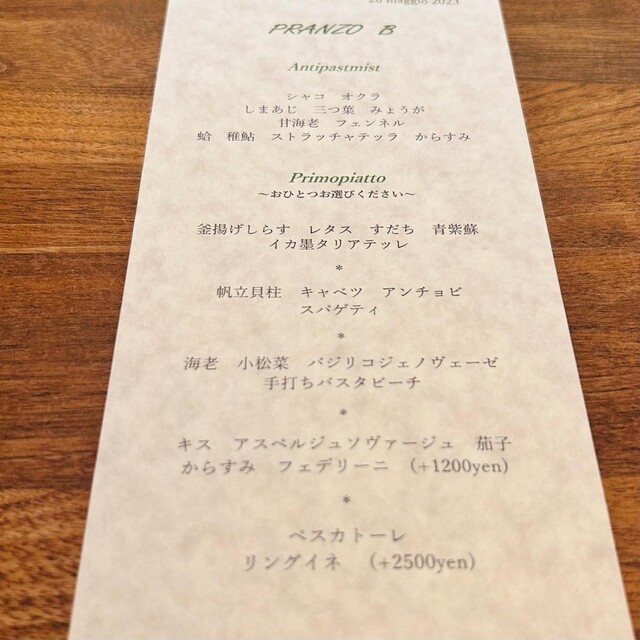 26 maggio 2023
PRANZO B
Antipastmist
シャコ オクラ
しまあじ 三つ葉 みょうが
甘海老 フェンネル
蛤 稚鮎 ストラッチャテッラ からすみ
Primopiatto
〜おひとつお選びください〜
釜揚げしらす レタス すだち 青紫蘇
イカ墨タリアテッレ
*
帆立貝柱 キャベツ アンチョビ
スパゲティ
*
海老 小松菜 バジリコジェノヴェーゼ
手打ちパスタピーチ
*
キス アスペルジュソヴァージュ 茄子
からすみ フェデリーニ (+1200yen)
*
ペスカトーレ
リングイネ (+2500yen)